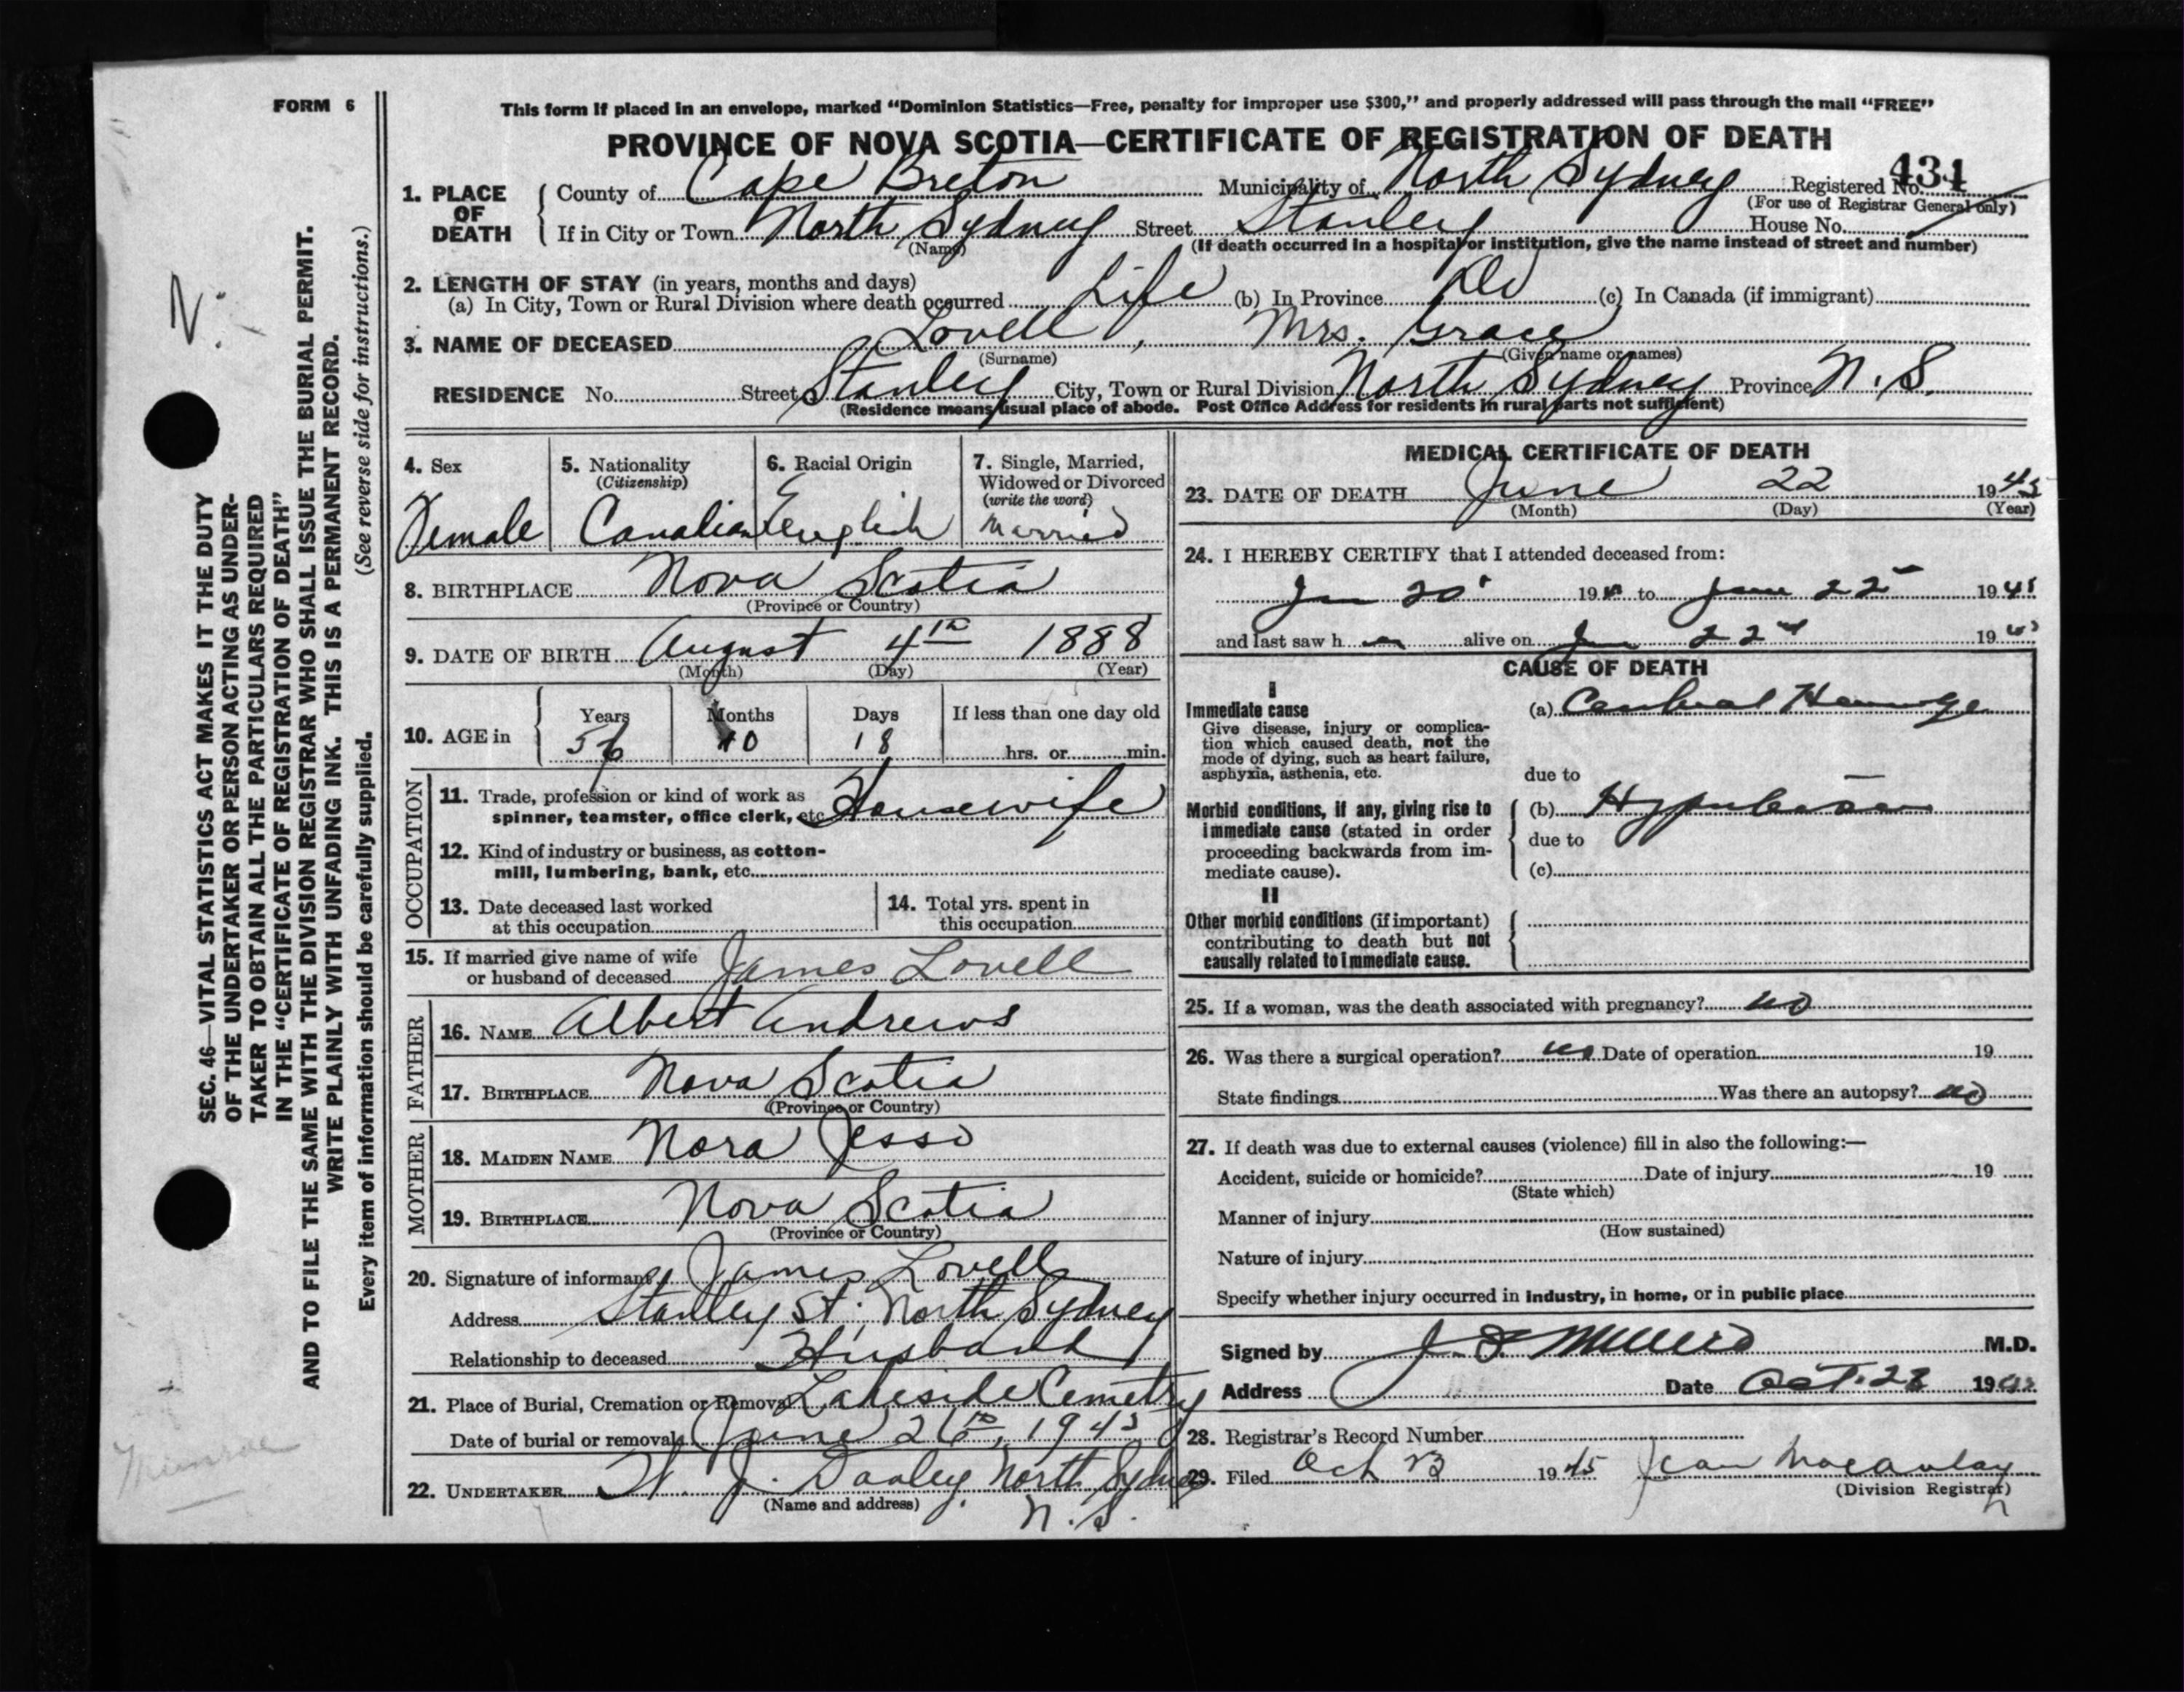 FORM 6
This form if placed in an envelope, marked "Dominion Statistics—Free, penalty for improper use $300," and properly addressed will pass through the mail "FREE"
PROVINCE OF NOVA SCOTIA—CERTIFICATE OF REGISTRATION OF DEATH
434
1. PLACE OF DEATH
County of Cape Breton Municipality of North Sydney Registered No.
(For use of Registrar General only)
If in City or Town North Sydney Street Stanley House No.
(Name) (If death occurred in a hospital or institution, give the name instead of street and number)
2. LENGTH OF STAY (in years, months and days)
(a) In City, Town or Rural Division where death occurred Life (b) In Province Do (c) In Canada (if immigrant)
3. NAME OF DECEASED Lovell, Mrs. Grace
(Surname) (Given name or names)
RESIDENCE No. Street Stanley City, Town or Rural Division North Sydney Province N. S.
(Residence means usual place of abode. Post Office Address for residents in rural parts not sufficient)
4. Sex
Female
5. Nationality
(Citizenship)
Canadian
6. Racial Origin
English
7. Single, Married,
Widowed or Divorced
(write the word)
Married
8. BIRTHPLACE Nova Scotia
(Province or Country)
9. DATE OF BIRTH August 4th 1888
(Month) (Day) (Year)
10. AGE in
Years Months Days If less than one day old
56 10 18 hrs. or min.
OCCUPATION
11. Trade, profession or kind of work as
spinner, teamster, office clerk, etc. Housewife
12. Kind of industry or business, as cotton-
mill, lumbering, bank, etc.
13. Date deceased last worked
at this occupation
14. Total yrs. spent in
this occupation
15. If married give name of wife
or husband of deceased James Lovell
FATHER
16. NAME Albert Andrews
17. BIRTHPLACE Nova Scotia
(Province or Country)
MOTHER
18. MAIDEN NAME Nora Jesso
19. BIRTHPLACE Nova Scotia
(Province or Country)
20. Signature of informant James Lovell
Address Stanley St. North Sydney
Relationship to deceased Husband
21. Place of Burial, Cremation or Removal Lakeside Cemetry
Date of burial or removal June 26th, 1945
22. UNDERTAKER J. Dooley, North Sydney
(Name and address) N. S.
MEDICAL CERTIFICATE OF DEATH
23. DATE OF DEATH June 22 1945
(Month) (Day) (Year)
24. I HEREBY CERTIFY that I attended deceased from:
20 19 to June 22 1945
and last saw h alive on 22nd 19
CAUSE OF DEATH
I
Immediate cause
Give disease, injury or complica-
tion which caused death, not the
mode of dying, such as heart failure,
asphyxia, asthenia, etc.
(a)
due to
Morbid conditions, if any, giving rise to
immediate cause (stated in order
proceeding backwards from im-
mediate cause).
(b)
due to
(c)
II
Other morbid conditions (if important)
contributing to death but not
causally related to immediate cause.
25. If a woman, was the death associated with pregnancy? no
26. Was there a surgical operation? no Date of operation 19
State findings Was there an autopsy? no
27. If death was due to external causes (violence) fill in also the following:—
Accident, suicide or homicide? Date of injury 19
(State which)
Manner of injury
(How sustained)
Nature of injury
Specify whether injury occurred in industry, in home, or in public place
Signed by M.D.
Address Date Oct. 23 19
28. Registrar's Record Number
29. Filed Oct 23 1945 Jean Macaulay
(Division Registrar)
SEC. 46—VITAL STATISTICS ACT MAKES IT THE DUTY
OF THE UNDERTAKER OR PERSON ACTING AS UNDER-
TAKER TO OBTAIN ALL THE PARTICULARS REQUIRED
IN THE "CERTIFICATE OF REGISTRATION OF DEATH"
AND TO FILE THE SAME WITH THE DIVISION REGISTRAR WHO SHALL ISSUE THE BURIAL PERMIT.
WRITE PLAINLY WITH UNFADING INK. THIS IS A PERMANENT RECORD.
Every item of information should be carefully supplied. (See reverse side for instructions.)
Munroe